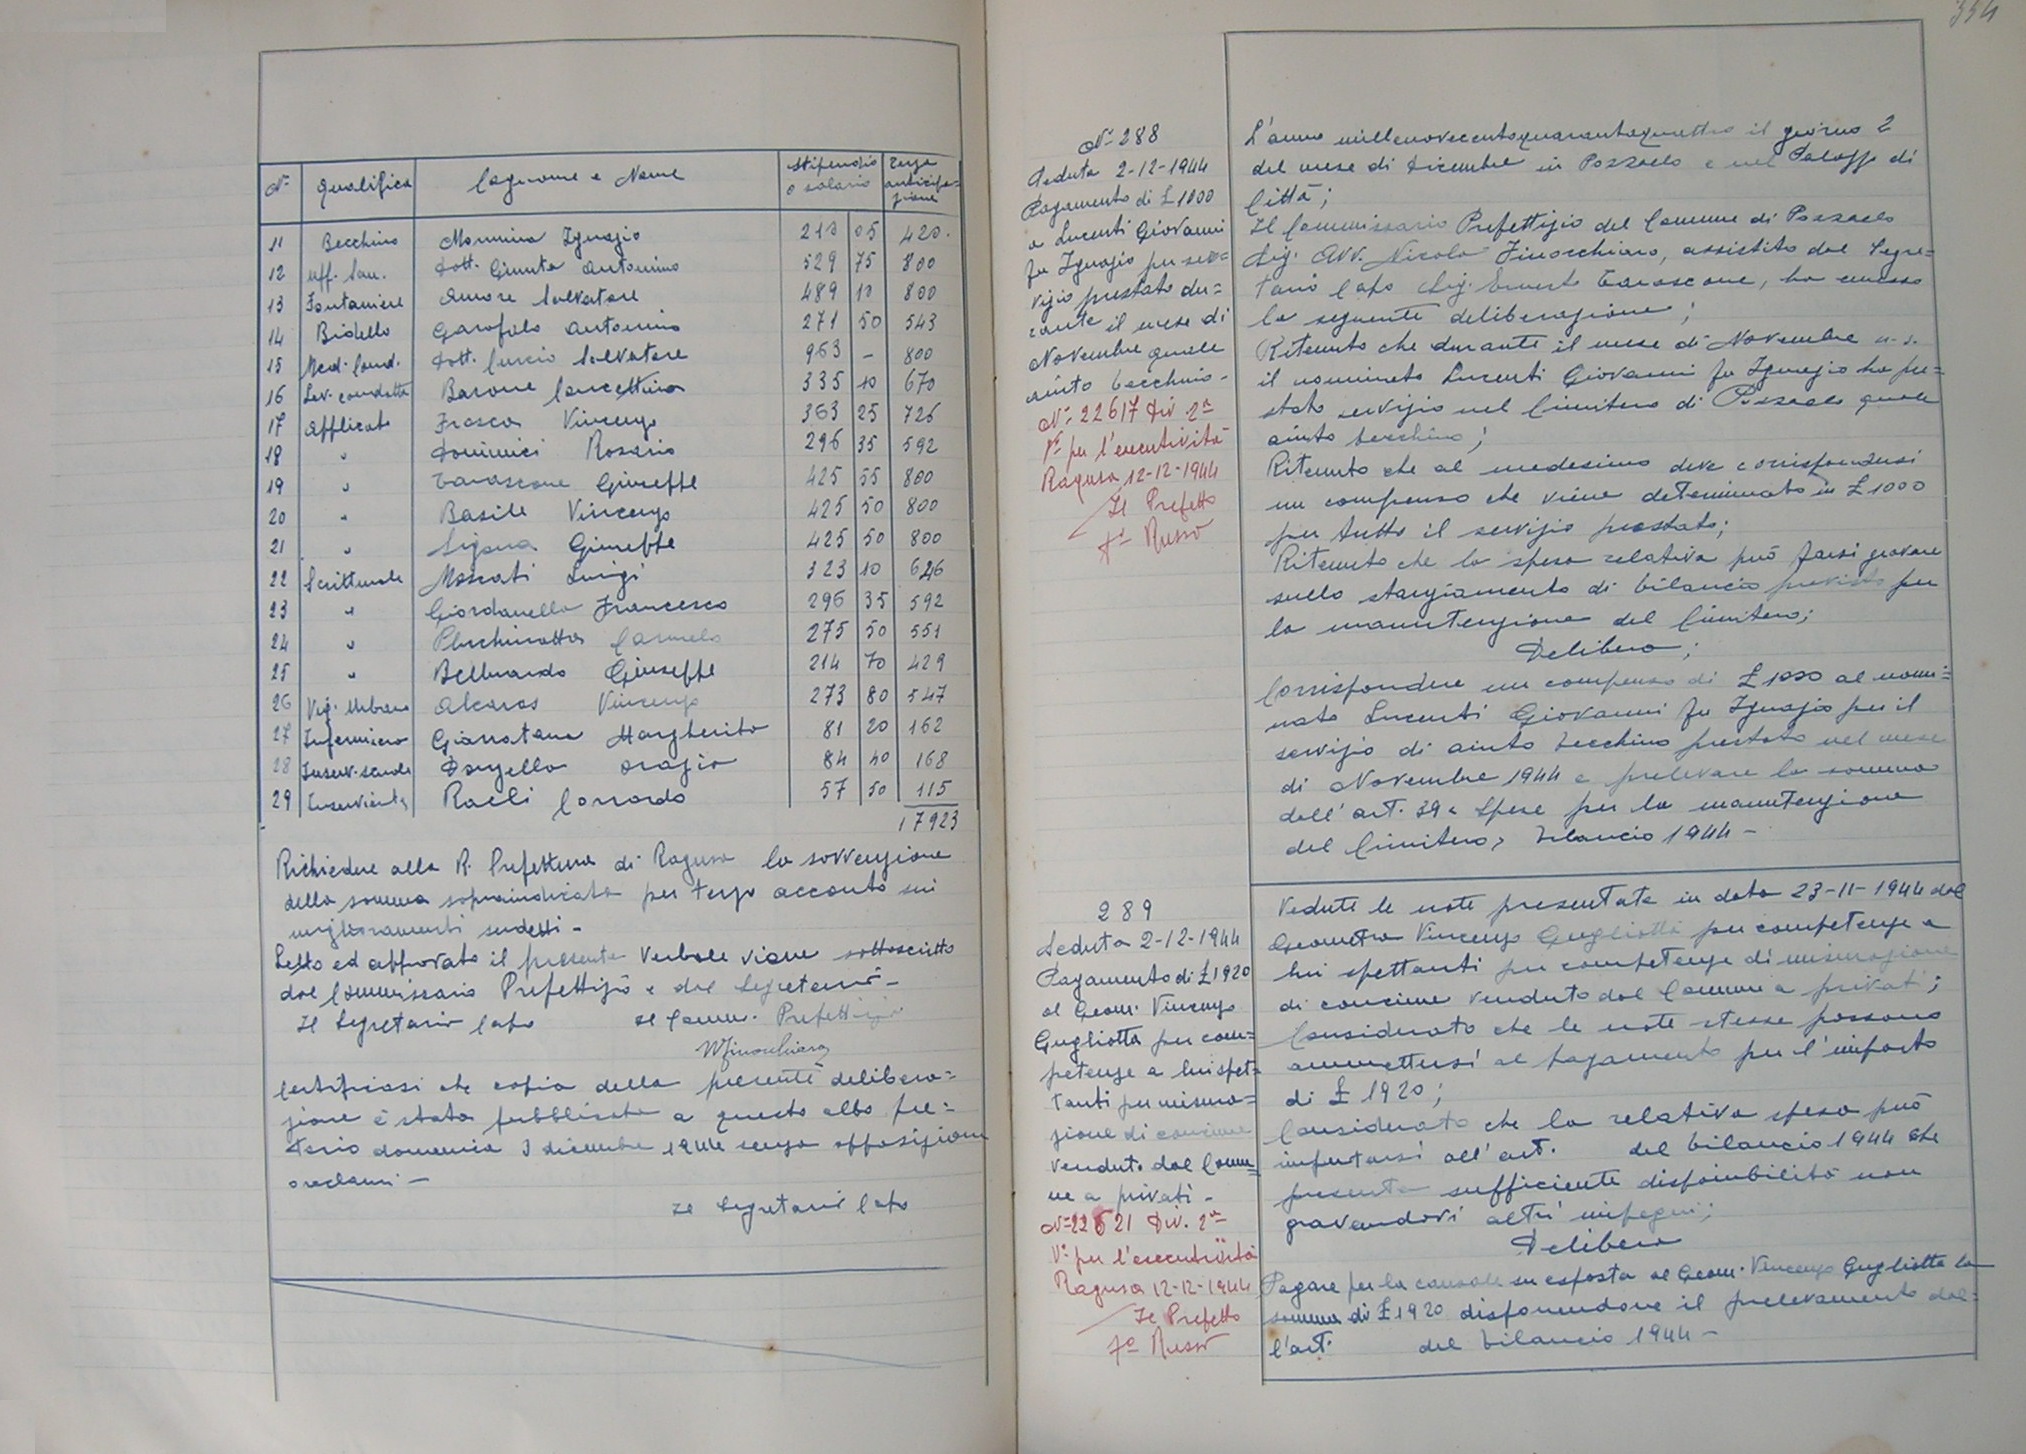 N° Qualifica Cognome e Nome Stipendio o salario Terza anticipazione
11 Becchino Monnina Ignazio 210 05 420.
12 uff. San. Dott. Giunta Antonino 529 75 800
13 Fontaniere Amore Salvatore 489 10 800
14 Bidello Garofalo Antonino 271 50 543
15 Med. Cond. Dott. Curcio Salvatore 963 - 800
16 Lev. condotta Barone Concettina 335 10 670
17 Applicato Frasca Vincenzo 363 25 726
18 " Dominici Rosario 296 35 592
19 " Tarascone Giuseppe 425 55 800
20 " Basile Vincenzo 425 50 800
21 " Sigona Giuseppe 425 50 800
22 Scritturale Moscati Luigi 323 10 646
23 " Giordanella Francesco 296 35 592
24 " Carmelo 275 50 551
25 " Belluardo Giuseppe 214 70 429
26 Vig. Urbano Alcaras Vincenzo 273 80 547
27 Infermiera Giannatana Margherita 81 20 162
28 Inserv. scuole Orazio 84 40 168
29 Inserviente Raeli Corrado 57 50 115
17923
Richiedere alla R. Prefettura di Ragusa la sovvenzione
della somma sopraindicata per terzo acconto sui
miglioramenti suddetti -
Letto ed approvato il presente Verbale viene sottoscritto
dal Commissario Prefettizio e dal Segretario -
Il Segretario Capo Il Comm. Prefettizio
NFinocchiaro
Certificasi che copia della presente delibera=
zione è stata pubblicata a questo albo pre=
torio domenica 3 dicembre 1944 senza opposizioni
o reclami -
Il Segretario Capo
334
N° 288
Seduta 2-12-1944
Pagamento di £ 1000
a Lucenti Giovanni
fu Ignazio per ser=
vizio prestato du=
rante il mese di
Novembre quale
aiuto becchino -
N° 22617 Div. 2a
V° per l'esecutività
Ragusa 12-12-1944
Il Prefetto
F° Russo
L'anno millenovecentoquarantaquattro il giorno 2
del mese di Dicembre in Pozzallo e nel Palazzo di
Città;
Il Commissario Prefettizio del Comune di Pozzallo
Sig. Avv. Nicola Finocchiaro, assistito dal Segre=
tario Capo Sig. Ernesto Tarascone, ha emesso
la seguente deliberazione;
Ritenuto che durante il mese di Novembre u.s.
il nominato Lucenti Giovanni fu Ignazio ha pre=
stato servizio nel Cimitero di Pozzallo quale
aiuto becchino;
Ritenuto che al medesimo deve corrispondersi
un compenso che viene determinato in £ 1000
per tutto il servizio prestato;
Ritenuto che la spesa relativa può farsi gravare
sullo stanziamento di bilancio previsto per
la manutenzione del Cimitero;
Delibera;
Corrispondere un compenso di £ 1000 al nomi=
nato Lucenti Giovanni fu Ignazio per il
servizio di aiuto becchino prestato nel mese
di Novembre 1944 e prelevare la somma
dall'art. 39 « Spese per la manutenzione
del Cimitero» bilancio 1944 -
289
Seduta 2-12-1944
Pagamento di £ 1920
al Geom. Vincenzo
Gugliotta per com=
petenze a lui spet=
tanti per misura=
zione di concime
venduto dal Comu=
ne a privati -
N° 22621 Div. 2a
V° per l'esecutività
Ragusa 12-12-1944
Il Prefetto
F° Russo
Vedute le note presentate in data 23-11-1944 dal
Geometra Vincenzo Gugliotta per competenze a
lui spettanti per competenze di misurazione
di concime venduto dal Comune a privati;
Considerato che le note stesse possono
ammettersi al pagamento per l'importo
di £ 1920;
Considerato che la relativa spesa può
imputarsi all'art. del bilancio 1944 che
presenta sufficiente disponibilità non
gravandovi altri impegni;
Delibera
Pagare per la causale su esposta al Geom. Vincenzo Gugliotta la
somma di £ 1920 disponendone il prelevamento dal=
l'art. del bilancio 1944 -